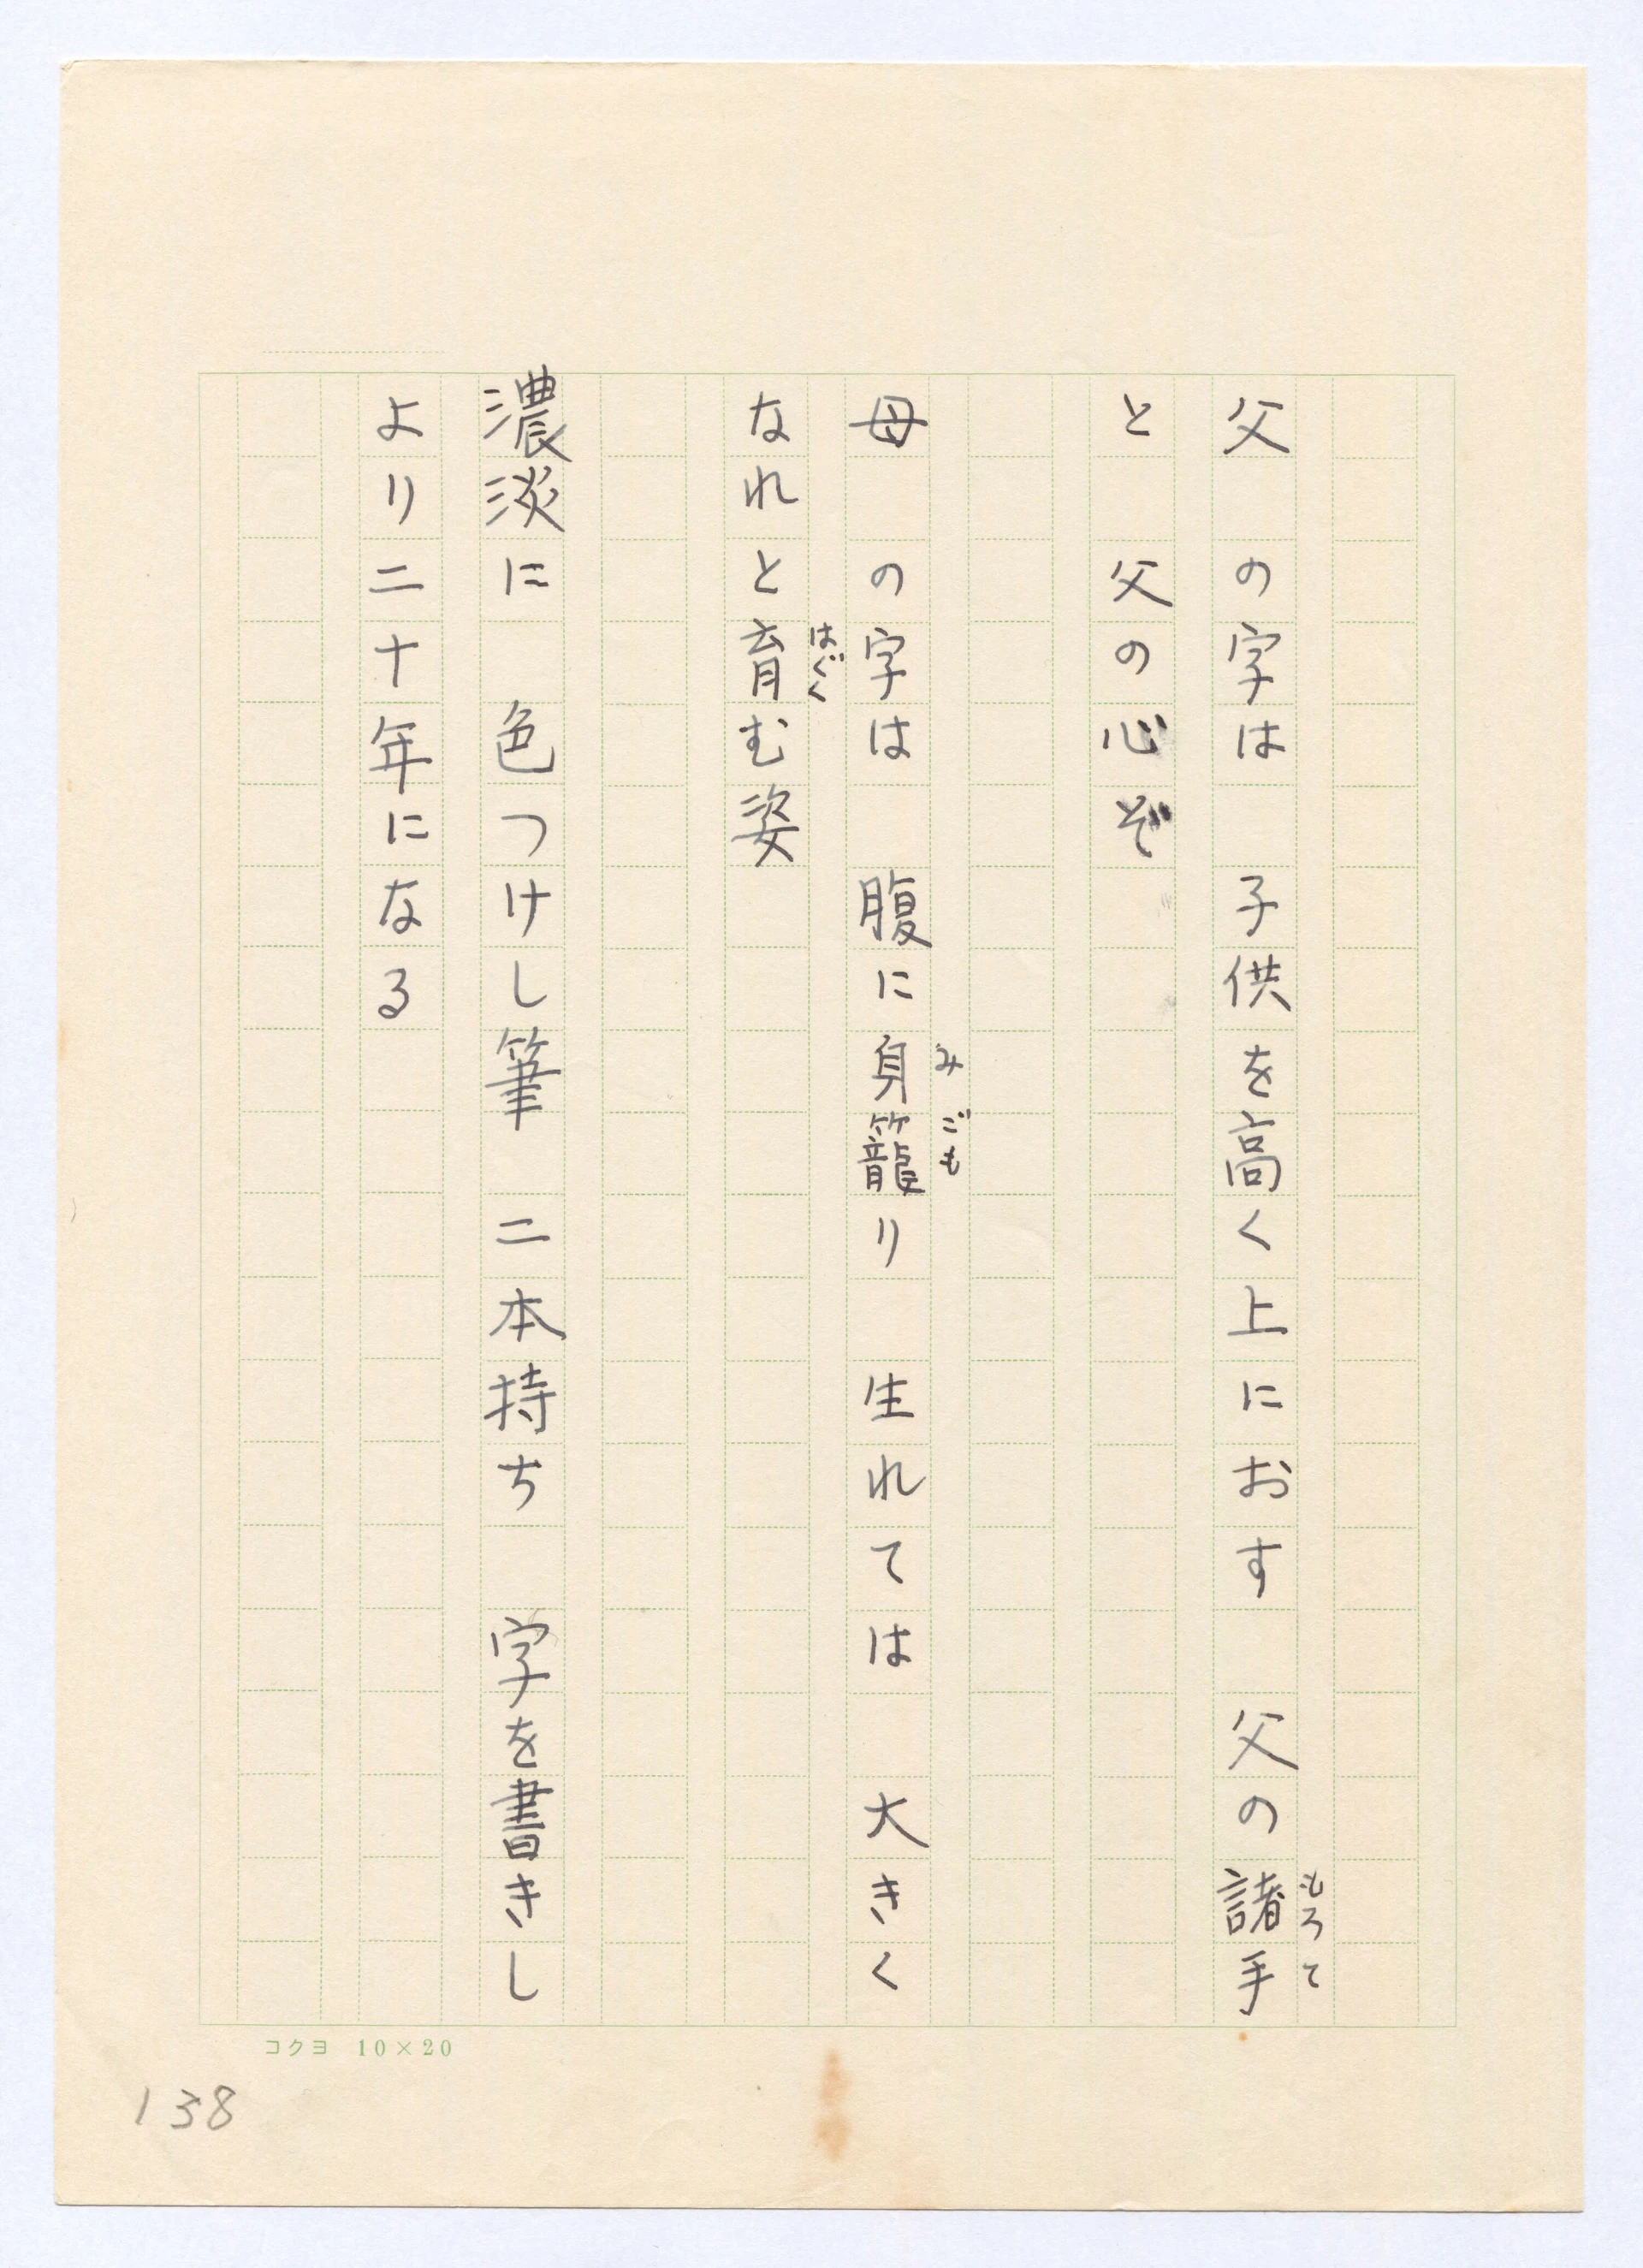 父　の字は　子供を高く上におす　父の諸手
もろて
と　父の心ぞ
母　の字は　腹に身籠り　生れては　大きく
み ごも
なれと育む姿
はぐく
濃淡に　色つけし筆　二本持ち　字を書きし
より二十年になる
コクヨ 10×20
138